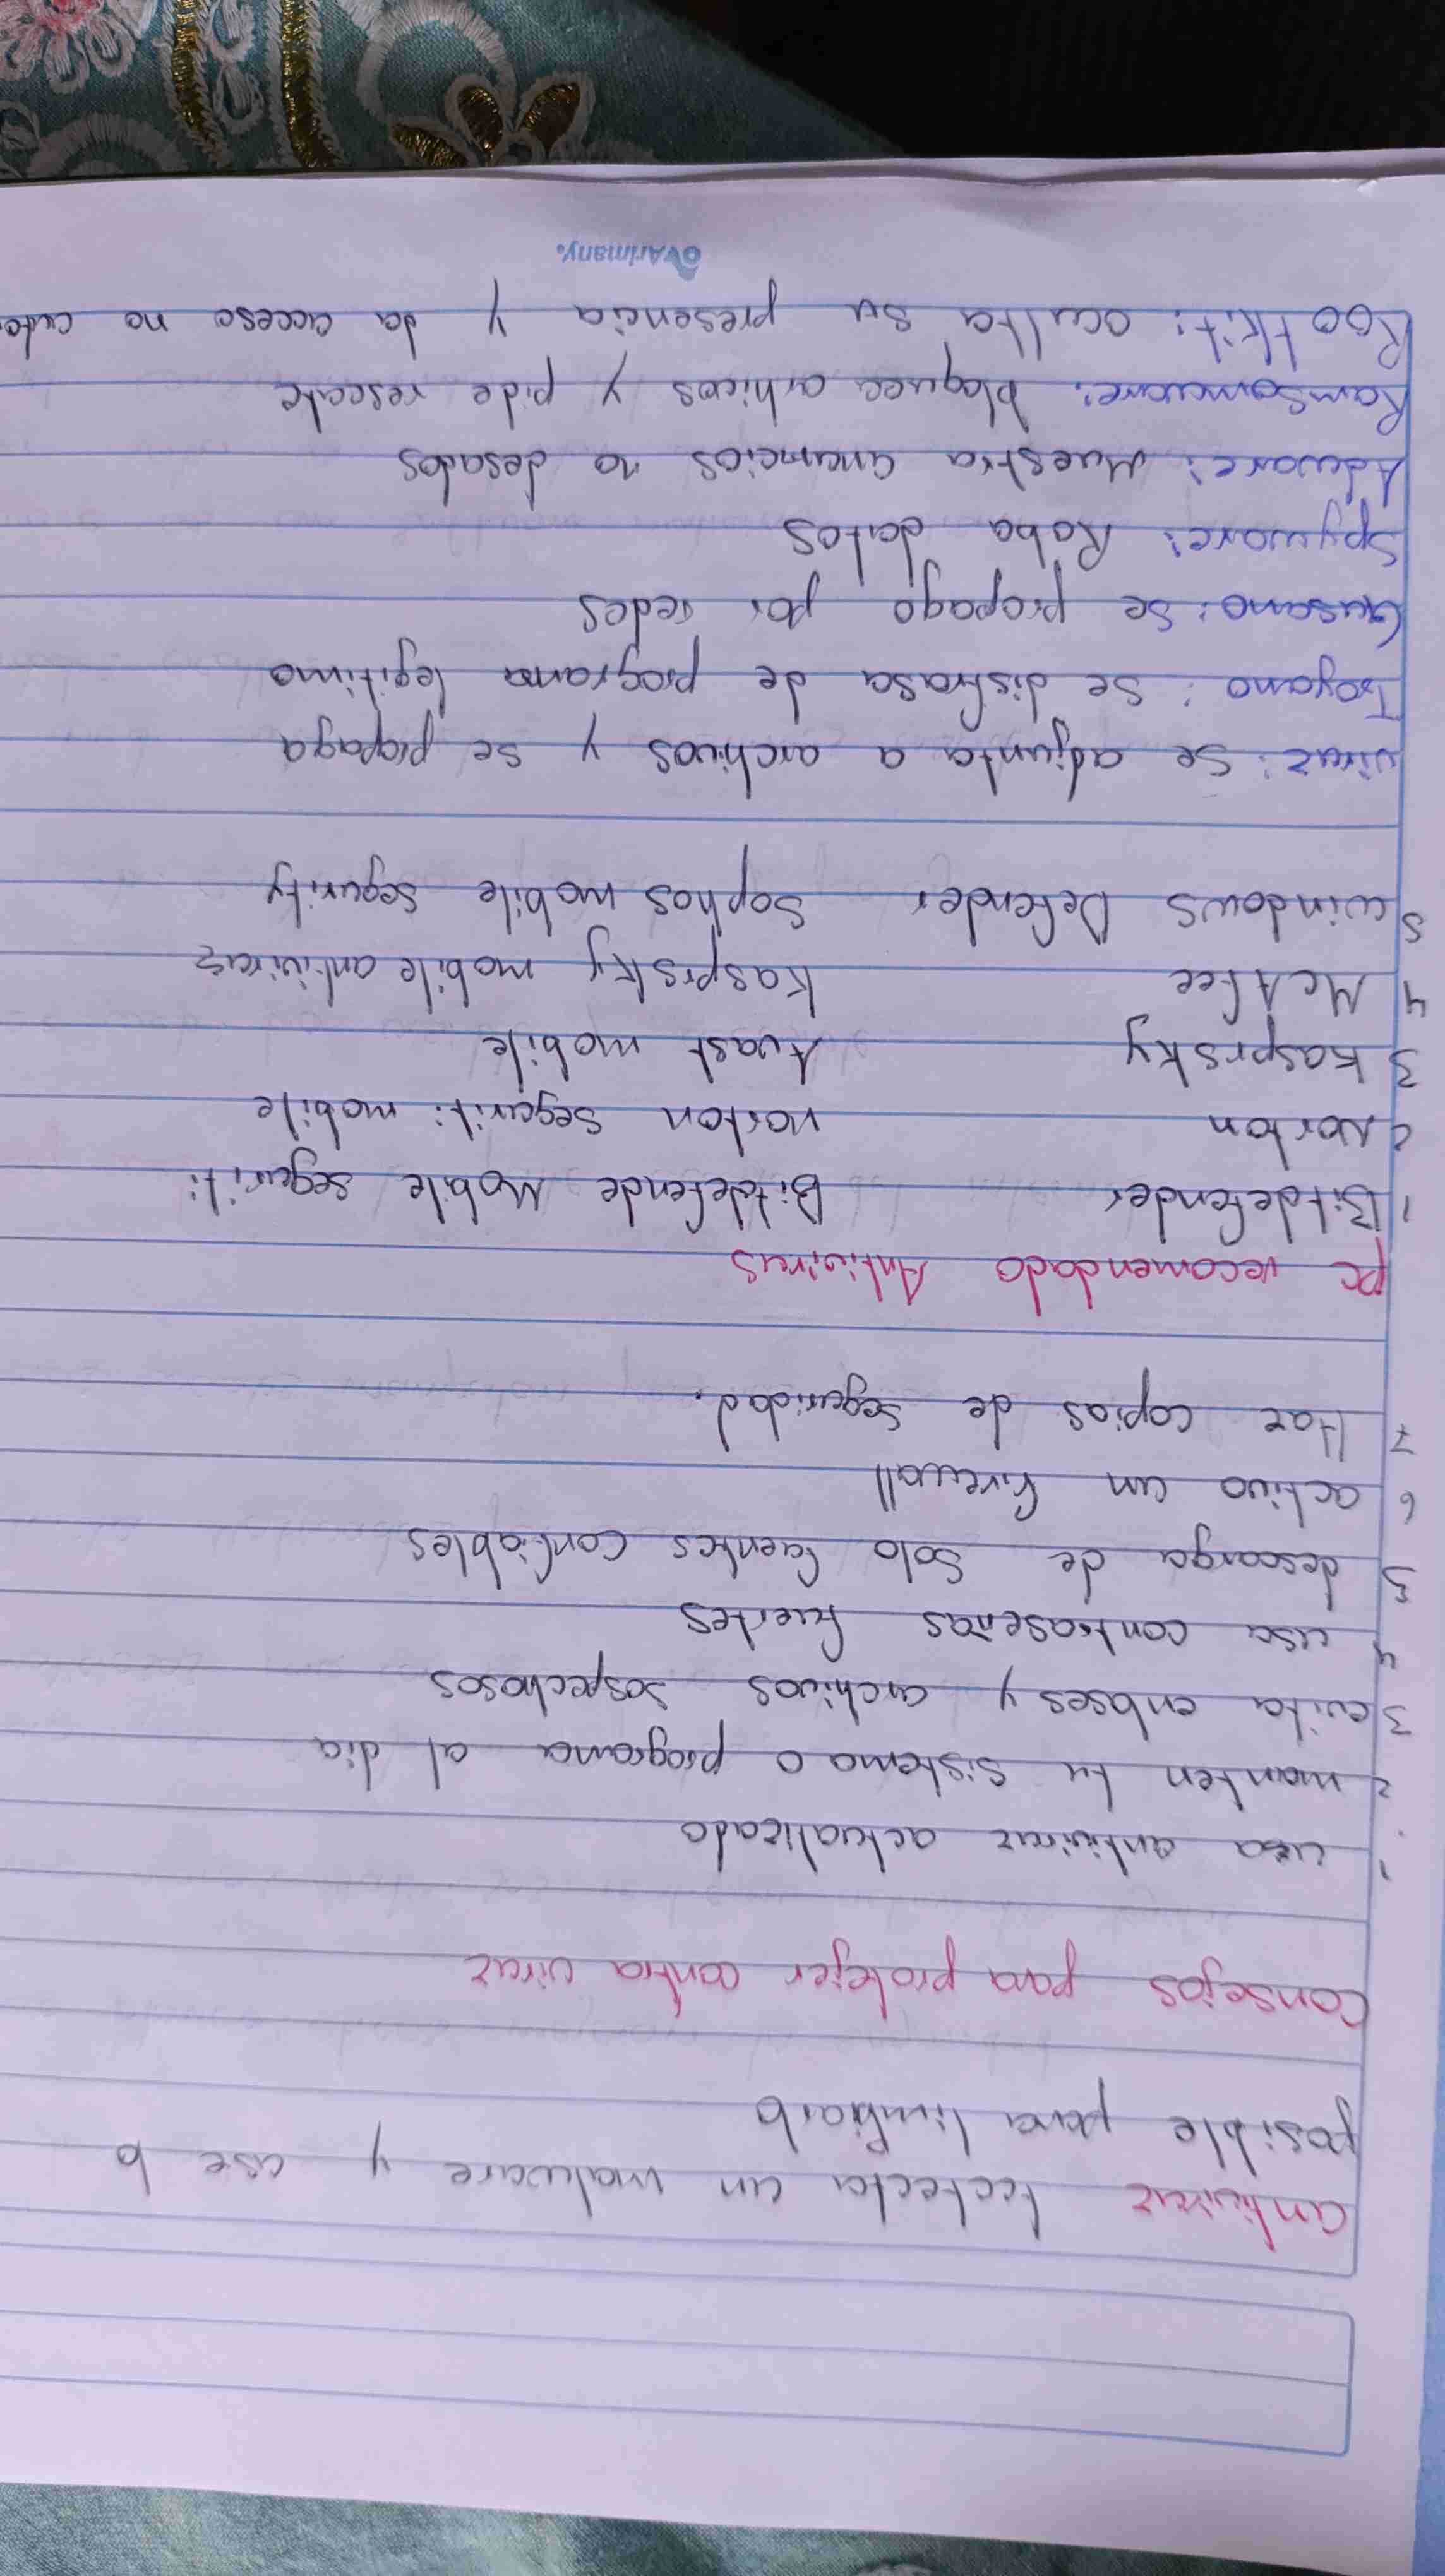 antiviruz tectecta un malware y ase lo
posible para limpiarlo
Consejos para protejer contra viruz
1 usa antiviruz actualizado
2 manten tu sistema o programa al dia
3 evita enlases y archivos sospechosos
4 usa contraseñas fuertes
5 descarga de solo fuentes confiables
6 activa un firewall
7 Haz copias de seguridad.
pc recomendado Antivirus
1 Bitdefender Bitdefende Mobile seguriti
2 Norton norton seguriti mobile
3 Kasprsky Avast mobile
4 McAfee Kasprsky mobile antiviruz
5 windows Defender sophos mobile segurity
viruz: se adjunta a archivos y se propaga
Troyano: se disfrasa de programa legitimo
Gusano: se propago por redes
Spyware: Roba datos
Adware: Muestra anuncios no desados
Ramsomware: bloquea arhivos y pide rescate
Rootkit: oculta su presencia y da acceso no auto
Arimany